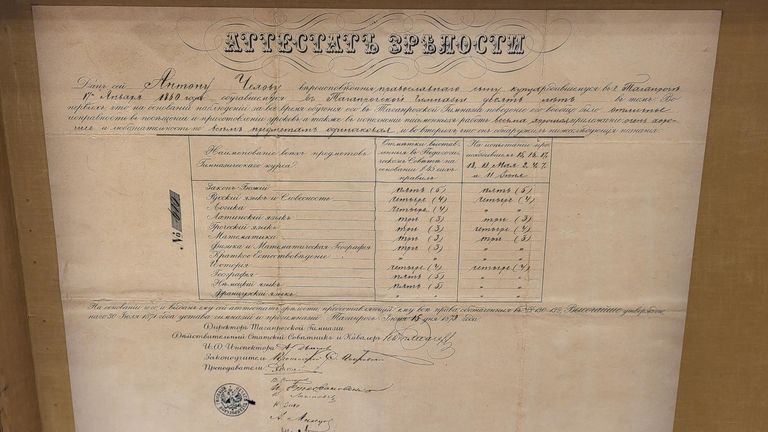 АТТЕСТАТЪ ЗРѢЛОСТИ
Данъ сей Антону Чехову вѣроисповѣданія православнаго, сыну купца родившемуся въ г. Таганрогѣ
17го Января 1860 года, обучавшемуся въ Таганрогской гимназіи десять лѣтъ въ томъ: Во
первыхъ, что на основаніи наблюденій за все время обученія его въ Таганрогской Гимназіи поведеніе его вообще было отличное
исправность въ посѣщеніи и приготовленіи уроковъ а также въ исполненіи письменныхъ работъ весьма хорошая прилежаніе очень хоро-
шее и любознательность по всѣмъ предметамъ одинаковая, и во вторыхъ, что онъ обнаружилъ нижеслѣдующія познанія:
Наименованіе всѣхъ предметовъ Гимназическаго курса
Отмѣтки выстав-
ленныя въ Педагоги-
ческомъ Совѣтѣ на
основаніи § 45 сихъ
правилъ
На испытаніи про-
исходившемъ 15, 16, 17,
Мая 2, 4, 7
и 11 Іюня
Законъ Божій пять (5) пять (5)
Русскій языкъ и Словесность четыре (4) четыре (4)
Логика четыре (4) "
Латинскій языкъ три (3) "
Греческій языкъ три (3) четыре (4)
Математика три (3) три (3)
Физика и Математическая Географія три (3) "
Краткое Естествовѣдѣніе " "
Исторія четыре (4) четыре (4)
Географія пять (5) "
Нѣмецкій языкъ пять (5) "
Французскій языкъ " "
№
На основаніи чего и выданъ ему сей аттестатъ зрѣлости, предоставляющій ему всѣ права, обозначенныя въ §§ 130-132 Высочайше утвержден-
наго 30 Іюля 1871 года устава гимназій и прогимназій. Таганрогъ Іюня 15 дня 1879 года.
Директоръ Таганрогской Гимназіи
Дѣйствительный Статскій Совѣтникъ и Кавалеръ
И.Ф. Инспектора
Законоучитель
Преподаватели: